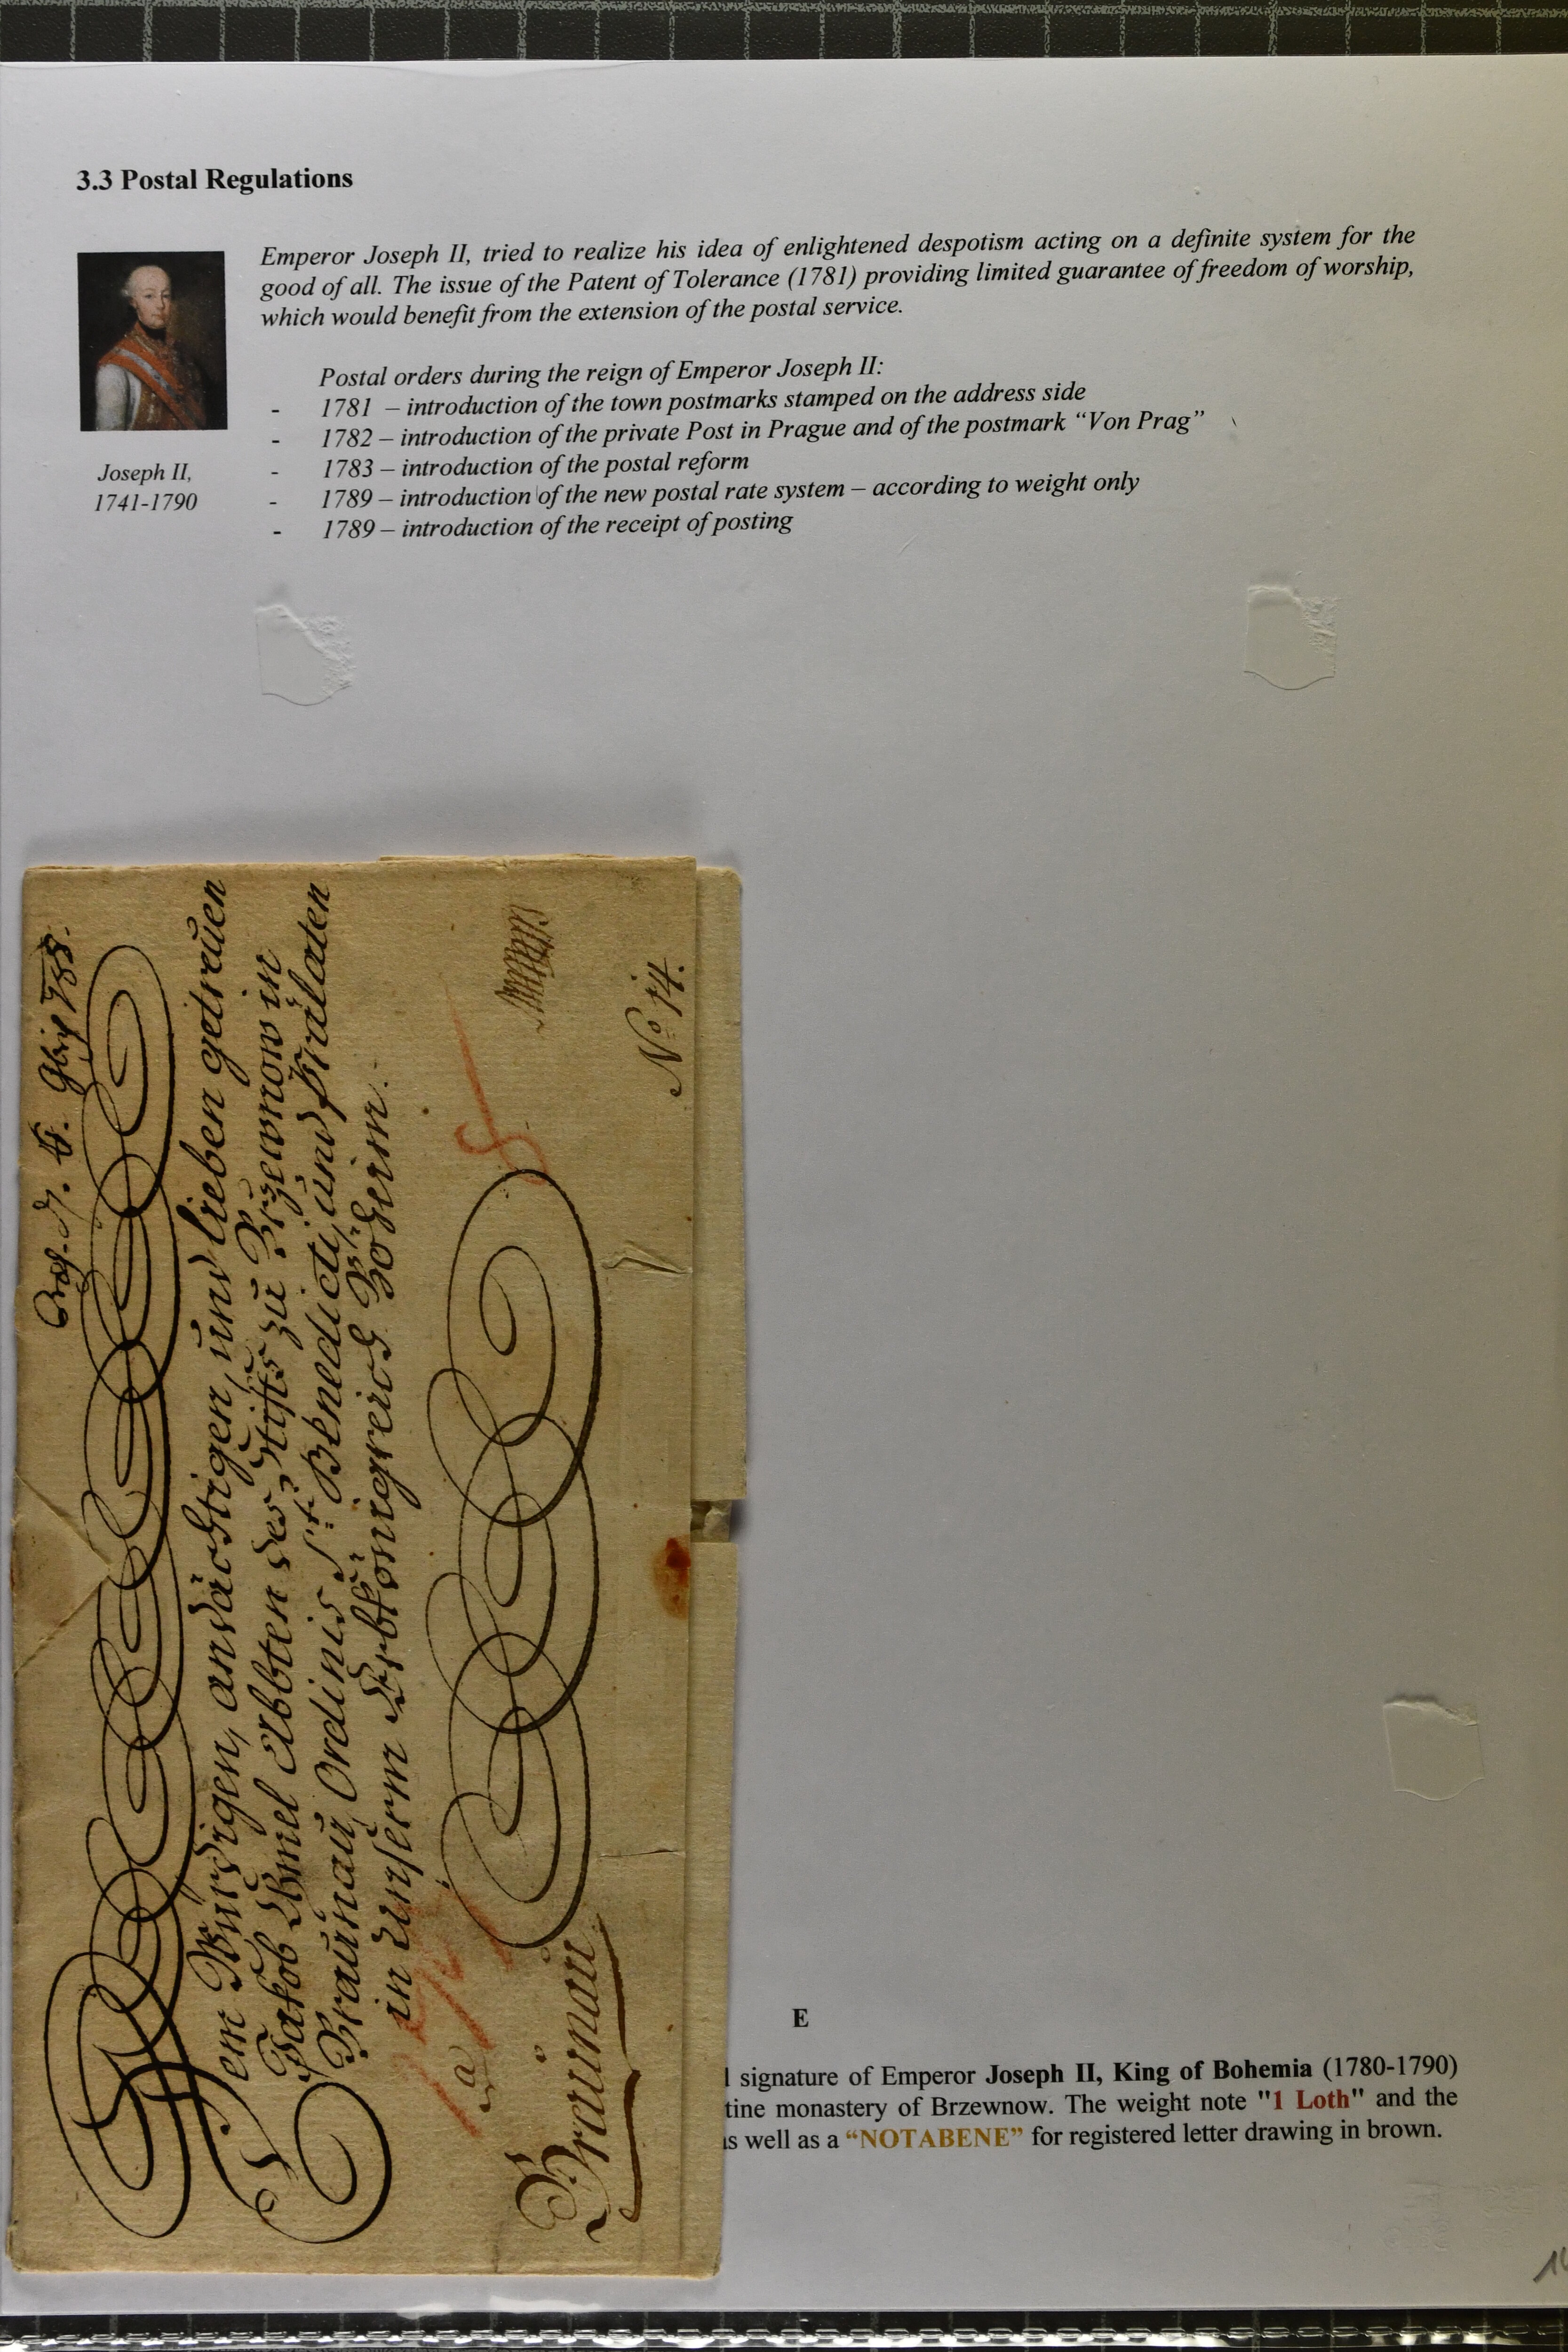 3.3 Postal Regulations
Emperor Joseph II, tried to realize his idea of enlightened despotism acting on a definite system for the
good of all. The issue of the Patent of Tolerance (1781) providing limited guarantee of freedom of worship,
which would benefit from the extension of the postal service.
Joseph II,
1741-1790
Postal orders during the reign of Emperor Joseph II:
- 1781 – introduction of the town postmarks stamped on the address side
- 1782 – introduction of the private Post in Prague and of the postmark “Von Prag”
- 1783 – introduction of the postal reform
- 1789 – introduction of the new postal rate system – according to weight only
- 1789 – introduction of the receipt of posting
Dem Würdigen, andächtigen, und lieben getreuen
Jakob Abbten des Stifts zu Brzewnow in
Braunau, Ordinis Sti Benedicti, und Prälaten
in Unserm Erbkönigreich Böheim.
Braunau
No 14.
E
signature of Emperor Joseph II, King of Bohemia (1780-1790)
tine monastery of Brzewnow. The weight note "1 Loth" and the
as well as a “NOTABENE” for registered letter drawing in brown.